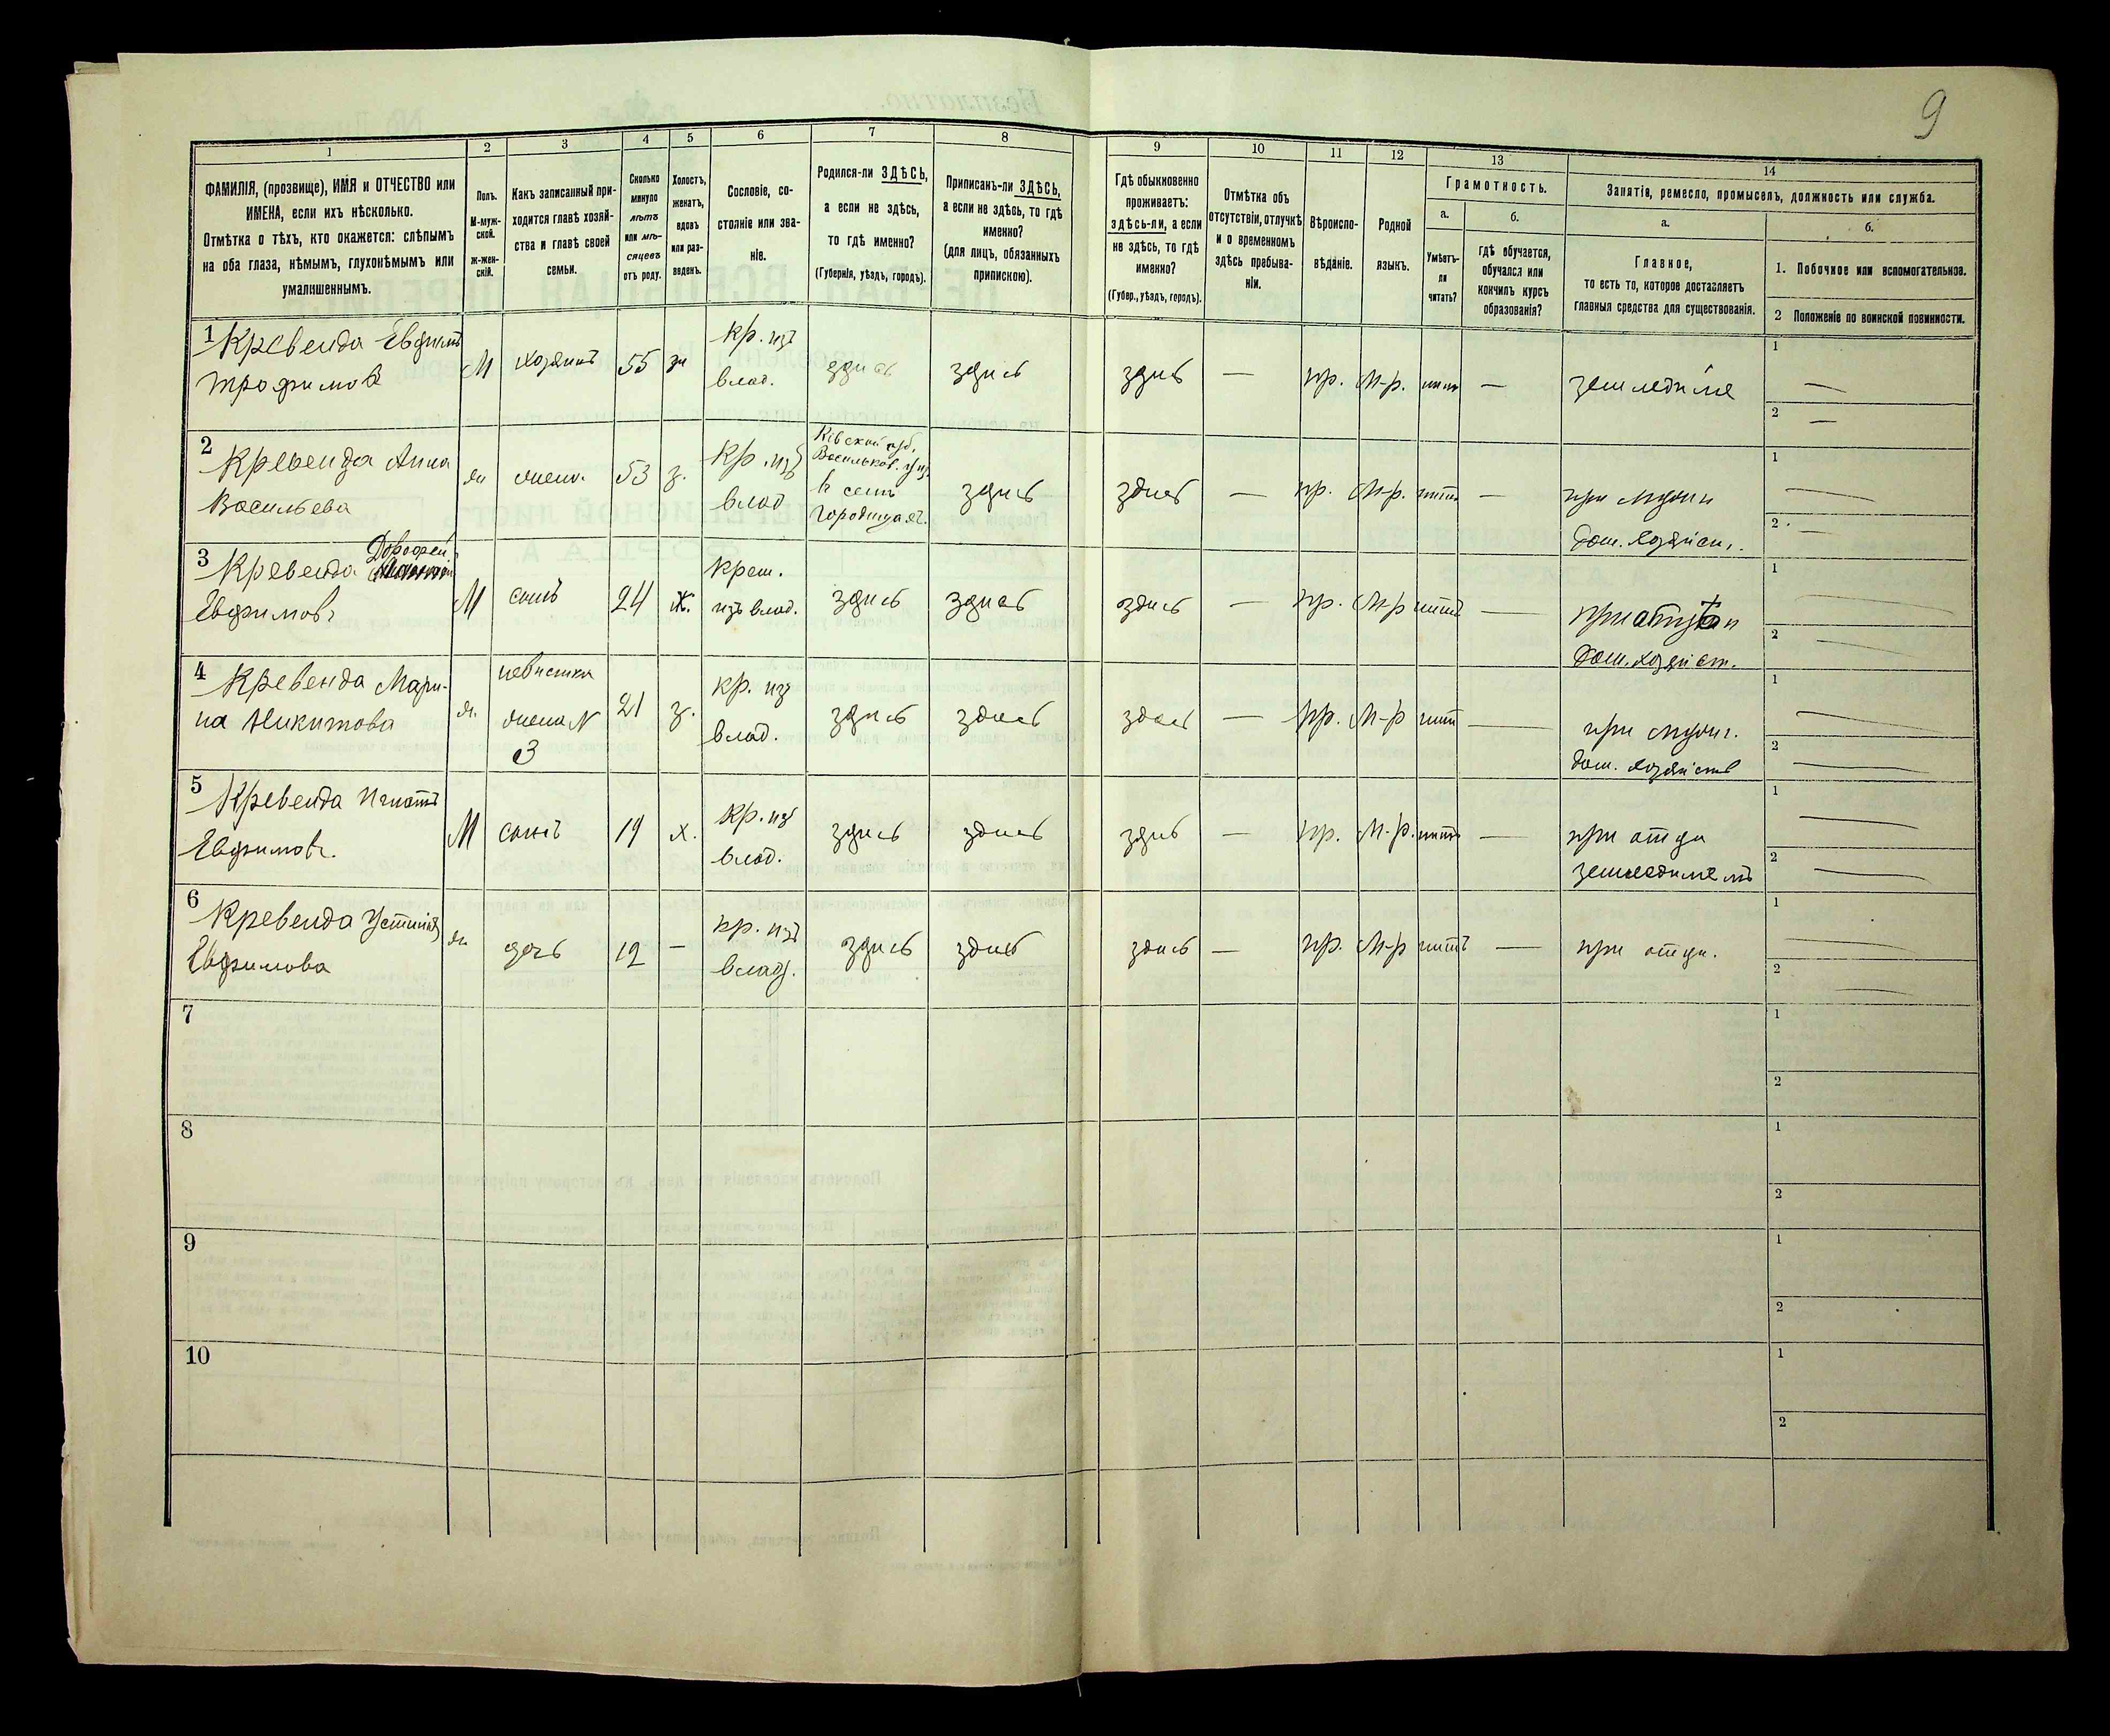 9
1
2
3
4
5
6
7
8
9
10
11
12
13
14
ФАМИЛІЯ, (прозвище), ИМЯ и ОТЧЕСТВО или
ИМЕНА, если ихъ нѣсколько.
Отмѣтка о тѣхъ, кто окажется: слѣпымъ
на оба глаза, нѣмымъ, глухонѣмымъ или
умалишеннымъ.
Полъ.
М-муж-
ской.
ж-жен-
скій.
Какъ записанный при-
ходится главѣ хозяй-
ства и главѣ своей
семьи.
Сколько
минуло
лѣтъ
или мѣ-
сяцевъ
отъ роду.
Холостъ,
женатъ,
вдовъ
или раз-
веденъ.
Сословіе, со-
стояніе или зва-
ніе.
Родился-ли ЗДѢСЬ,
а если не здѣсь,
то гдѣ именно?
(Губернія, уѣздъ, городъ).
Приписанъ-ли ЗДѢСЬ,
а если не здѣсь, то гдѣ
именно?
(для лицъ, обязанныхъ
припискою).
Гдѣ обыкновенно
проживаетъ:
здѣсь-ли, а если
не здѣсь, то гдѣ
именно?
(Губер., уѣздъ, городъ).
Отмѣтка объ
отсутствіи, отлучкѣ
и о временномъ
здѣсь пребыва-
ніи.
Вѣроиспо-
вѣданіе.
Родной
языкъ.
Грамотность.
а.
Умѣетъ-
ли
читать?
б.
Гдѣ обучается,
обучался или
кончилъ курсъ
образованія?
Занятія, ремесло, промыселъ, должность или служба.
а.
Главное,
то есть то, которое доставляетъ
главныя средства для существованія.
б.
1. Побочное или вспомогательное.
2 Положеніе по воинской повинности.
1 Кревенда Евфимъ
Трофимовъ
М
хозяинъ
55
ж
кр. изъ
влад.
здись
здись
здись
—
пр.
М-р.
нитъ
—
земледиліе
1 —
2 —
2 Кревенда Анна
Васильева
ж
жена.
53
з.
Кр. изъ
влад
Кіевской губ.
Васильков. уиз.
в сели
Городищах.
здись
здись
—
пр.
М-р.
нитъ
—
при мужи
дом. хозяйст.
1 —
2 —
3 Кревенда Дорофей
Евфимовъ
М
сынъ
24
ж.
Крест.
изъ влад.
здись
здись
здись
—
пр.
М-р
нитъ
—
при отци
дом. хозяйст.
1 —
2 —
4 Кревенда Мари-
на Никитова
ж.
невистка
жена N
3
21
з.
кр. из
влад.
здись
здись
здись
—
пр.
М-р
нит
—
при мужи.
дом. хозяйств
1 —
2 —
5 Кревенда Игнатъ
Евфимовъ.
М
сынъ
19
х.
Кр. из
влад.
здись
здись
здись
—
пр.
М-р.
нитъ
—
при отци
земледилемъ
1 —
2 —
6 Кревенда Устинія
Евфимова
ж
дочь
12
—
кр. изъ
влад.
здись
здись
здись
—
пр.
М-р
нитъ
—
при отци.
1 —
2 —
7
1
2
8
1
2
9
1
2
10
1
2